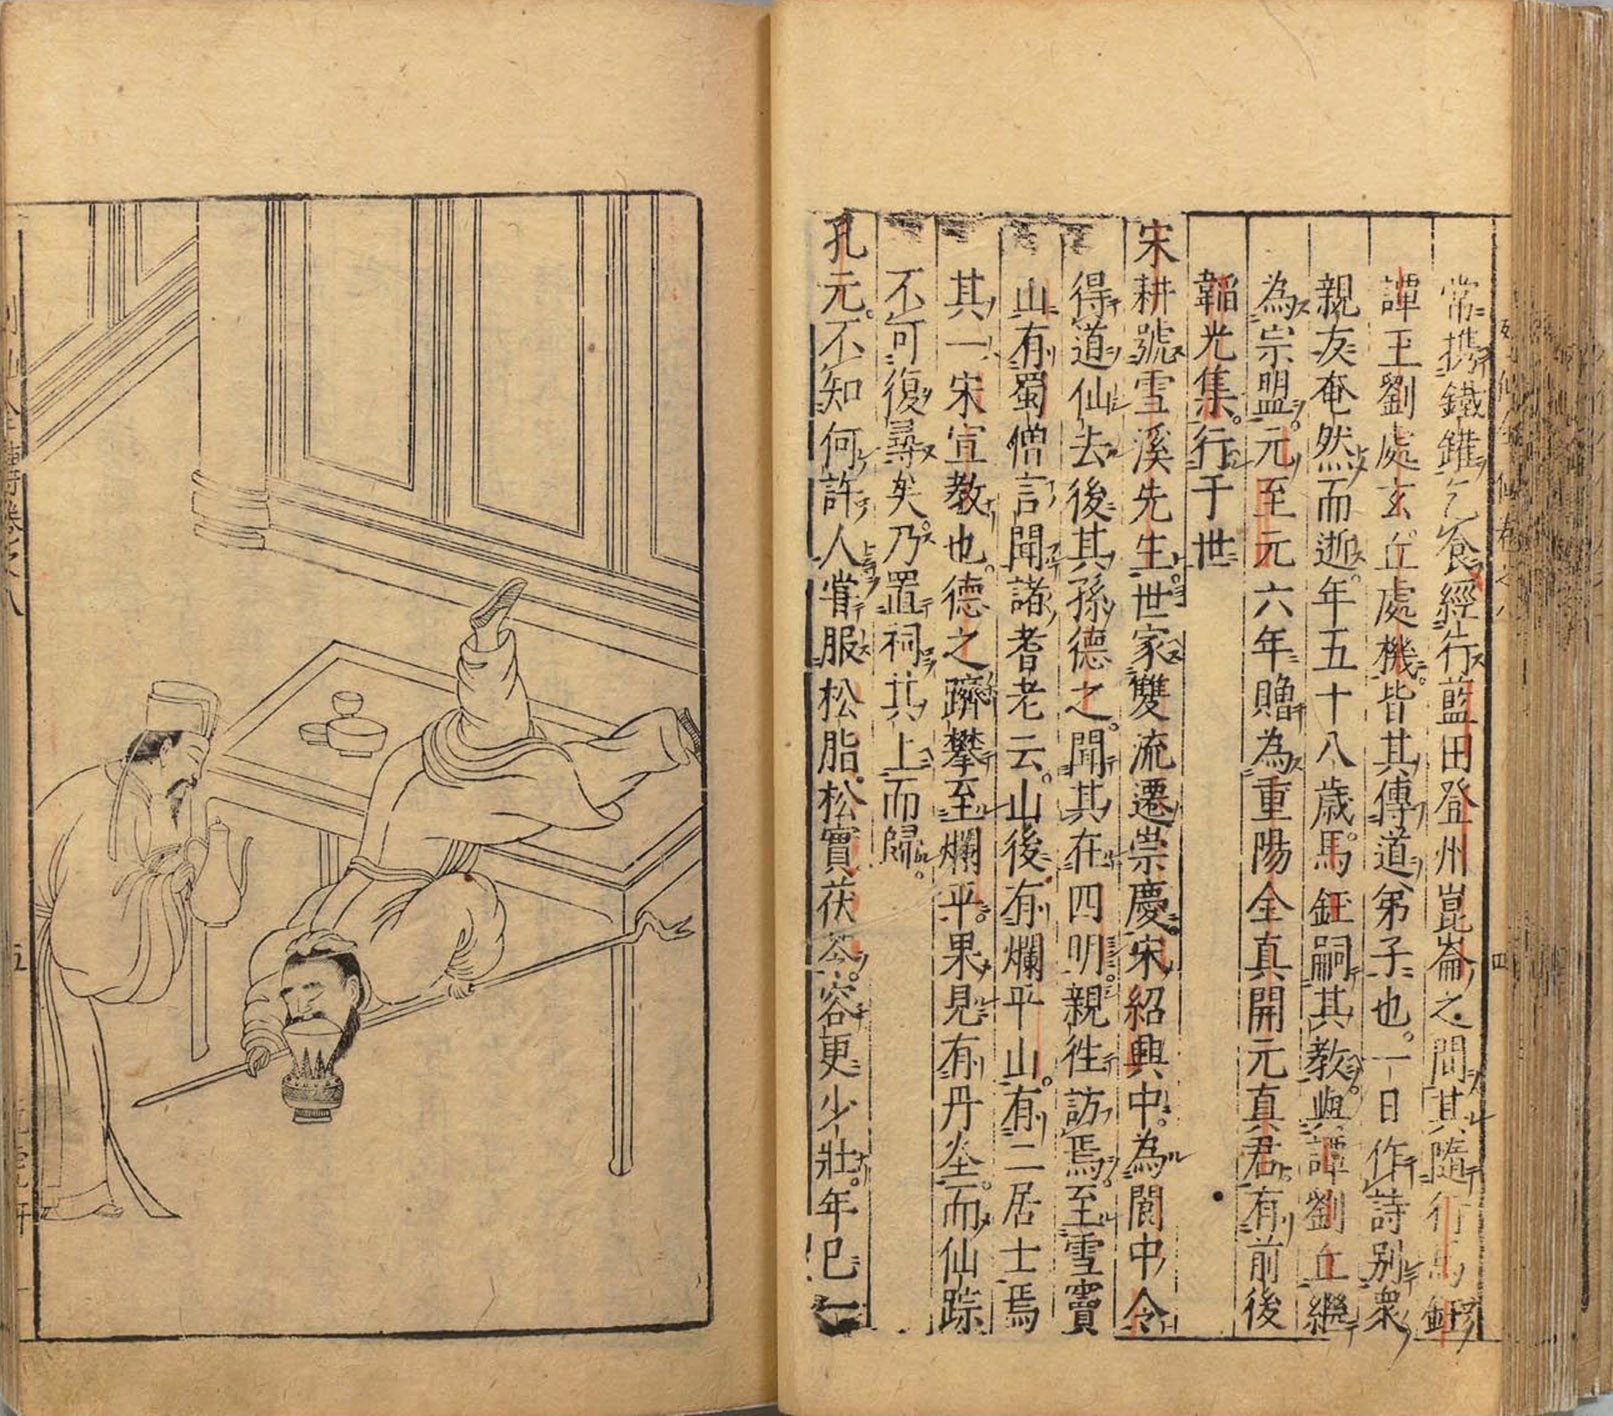 常携鐵鑵乞食經行藍田登州崑崙之間其隨行馬鈺
譚王劉處玄丘處機皆其傳道弟子也一日作詩別衆
親友奄然而逝年五十八歲馬鈺嗣其教與譚劉丘繼
為宗盟元至元六年贈為重陽全真開元真君有前後
韜光集行于世
宋耕號雪溪先生世家雙流遷崇慶宋紹興中為閬中令
得道仙去後其孫德之聞其在四明親徃訪焉至雪竇
山有蜀僧言聞諸耆老云山後有爛平山有二居士焉
其一宋宣教也德之躋攀至爛平果見有丹坙而仙踪
不可復尋矣乃置祠其上而歸
孔元不知何許人甞服松脂松實茯苓容更少壯年已一
卷之八
五
四